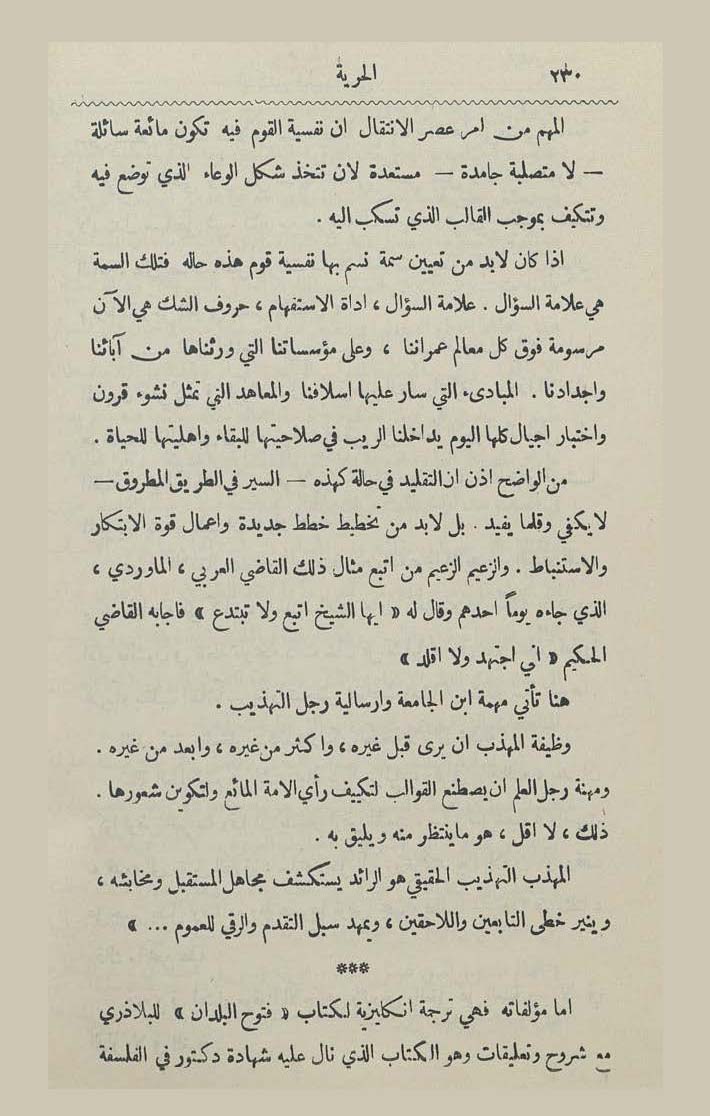 ٢٣٠ الحرية
المهم من امر عصر الانتقال ان نفسية القوم فيه تكون مائعة سائلة
— لا متصلبة جامدة — مستعدة لان تتخذ شكل الوعاء الذي توضع فيه
وتتكيف بموجب القالب الذي تسكب اليه .
اذا كان لابد من تعيين سمة نسم بها نفسية قوم هذه حاله فتلك السمة
هي علامة السؤال . علامة السؤال ، اداة الاستفهام ، حروف الشك هي الآن
مرسومة فوق كل معالم عمراننا ، وعلى مؤسساتنا التي ورثناها من آبائنا
واجدادنا . المبادىء التي سار عليها اسلافنا والمعاهد التي تمثل نشوء قرون
واختبار اجيال كلها اليوم يداخلنا الريب في صلاحيتها للبقاء واهليتها للحياة .
من الواضح اذن ان التقليد في حالة كهذه — السير في الطريق المطروق —
لا يكفي وقلما يفيد . بل لابد من تخطيط خطط جديدة واعمال قوة الابتكار
والاستنباط . والزعيم الزعيم من اتبع مثال ذلك القاضي العربي ، الماوردي ،
الذي جاءه يوماً احدهم وقال له « ايها الشيخ اتبع ولا تبتدع » فاجابه القاضي
الحكيم « اني اجتهد ولا اقلد »
هنا تأتي مهمة ابن الجامعة وارسالية رجل التهذيب .
وظيفة المهذب ان يرى قبل غيره ، واكثر من غيره ، وابعد من غيره .
ومهنة رجل العلم ان يصطنع القوالب لتكييف رأي الامة المائع ولتكوين شعورها .
ذلك ، لا اقل ، هو ما ينتظر منه ويليق به .
المهذب التهذيب الحقيقي هو الرائد يستكشف مجاهل المستقبل ومخابئه ،
وينير خطى التابعين واللاحقين ، ويمهد سبل التقدم والرقي للعموم ... »
***
اما مؤلفاته فهي ترجمة انكليزية لكتاب « فتوح البلدان » للبلاذري
مع شروح وتعليقات وهو الكتاب الذي نال عليه شهادة دكتور في الفلسفة